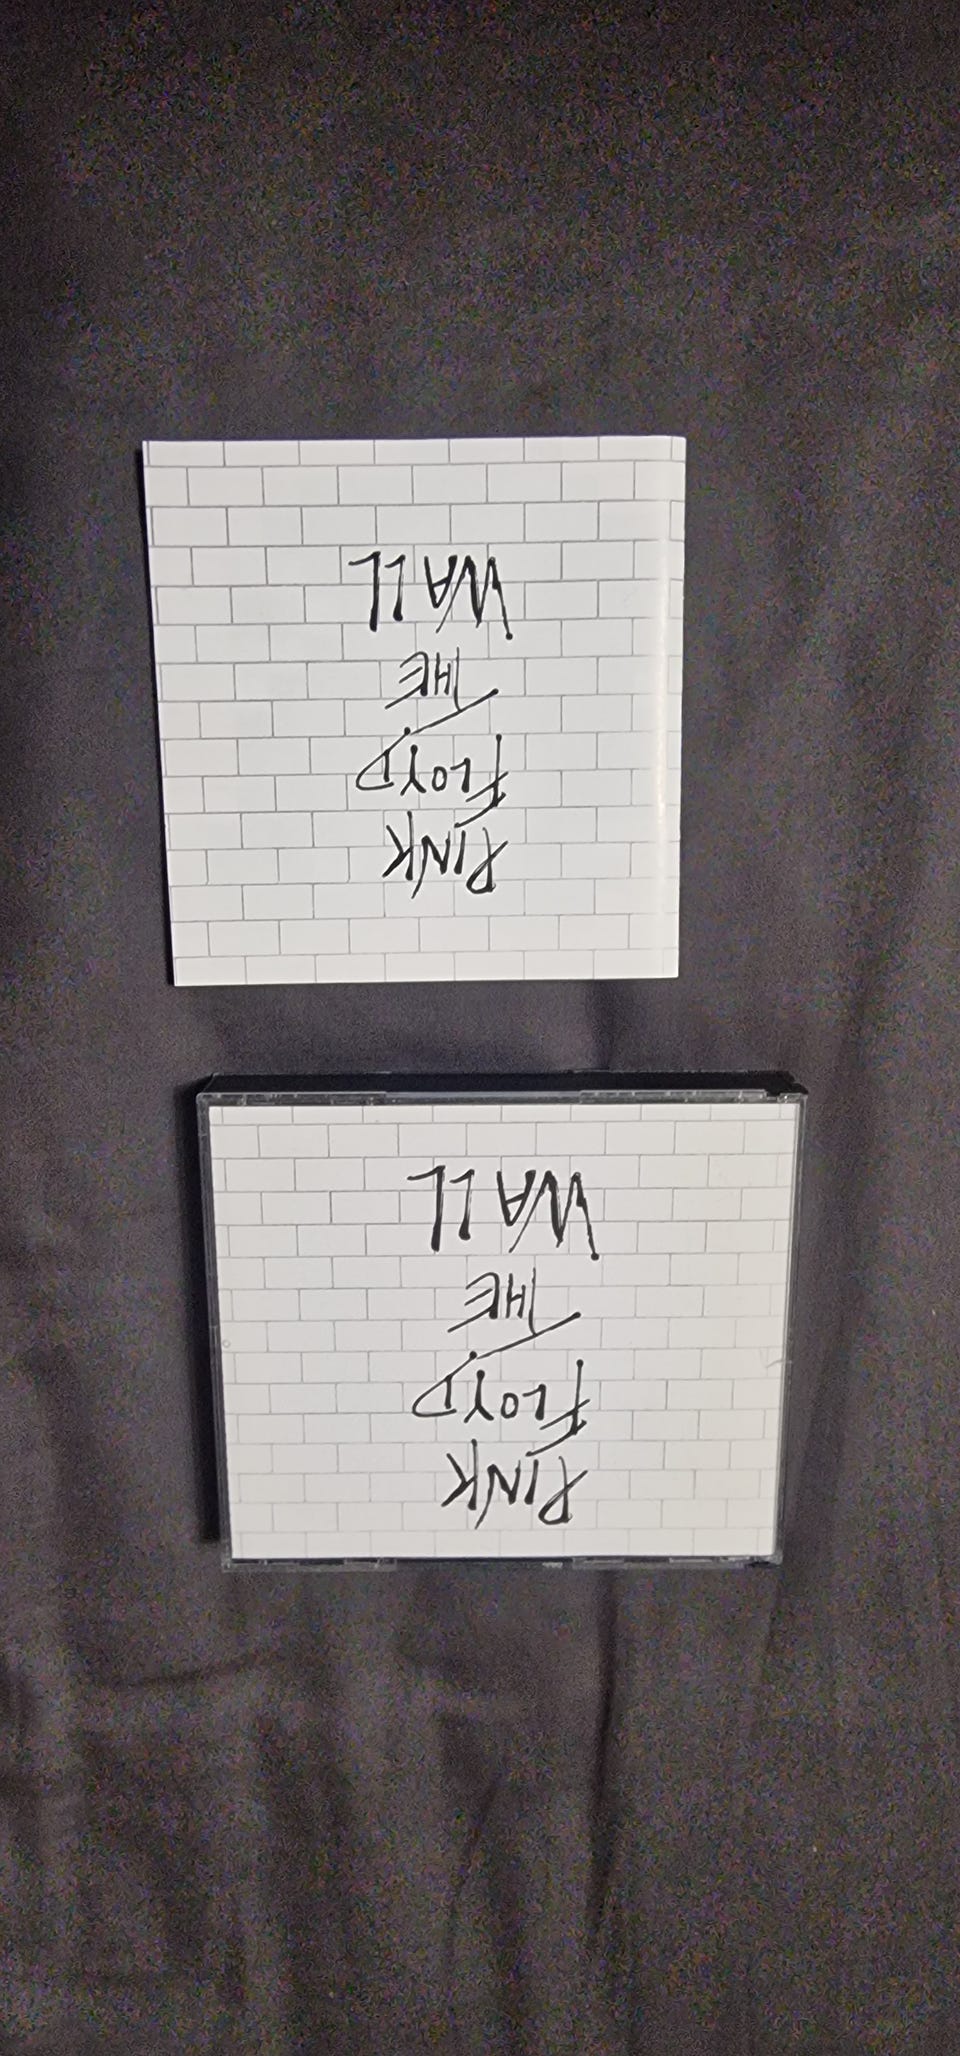 PINK
FLOYD
THE
WALL
PINK
FLOYD
THE
WALL